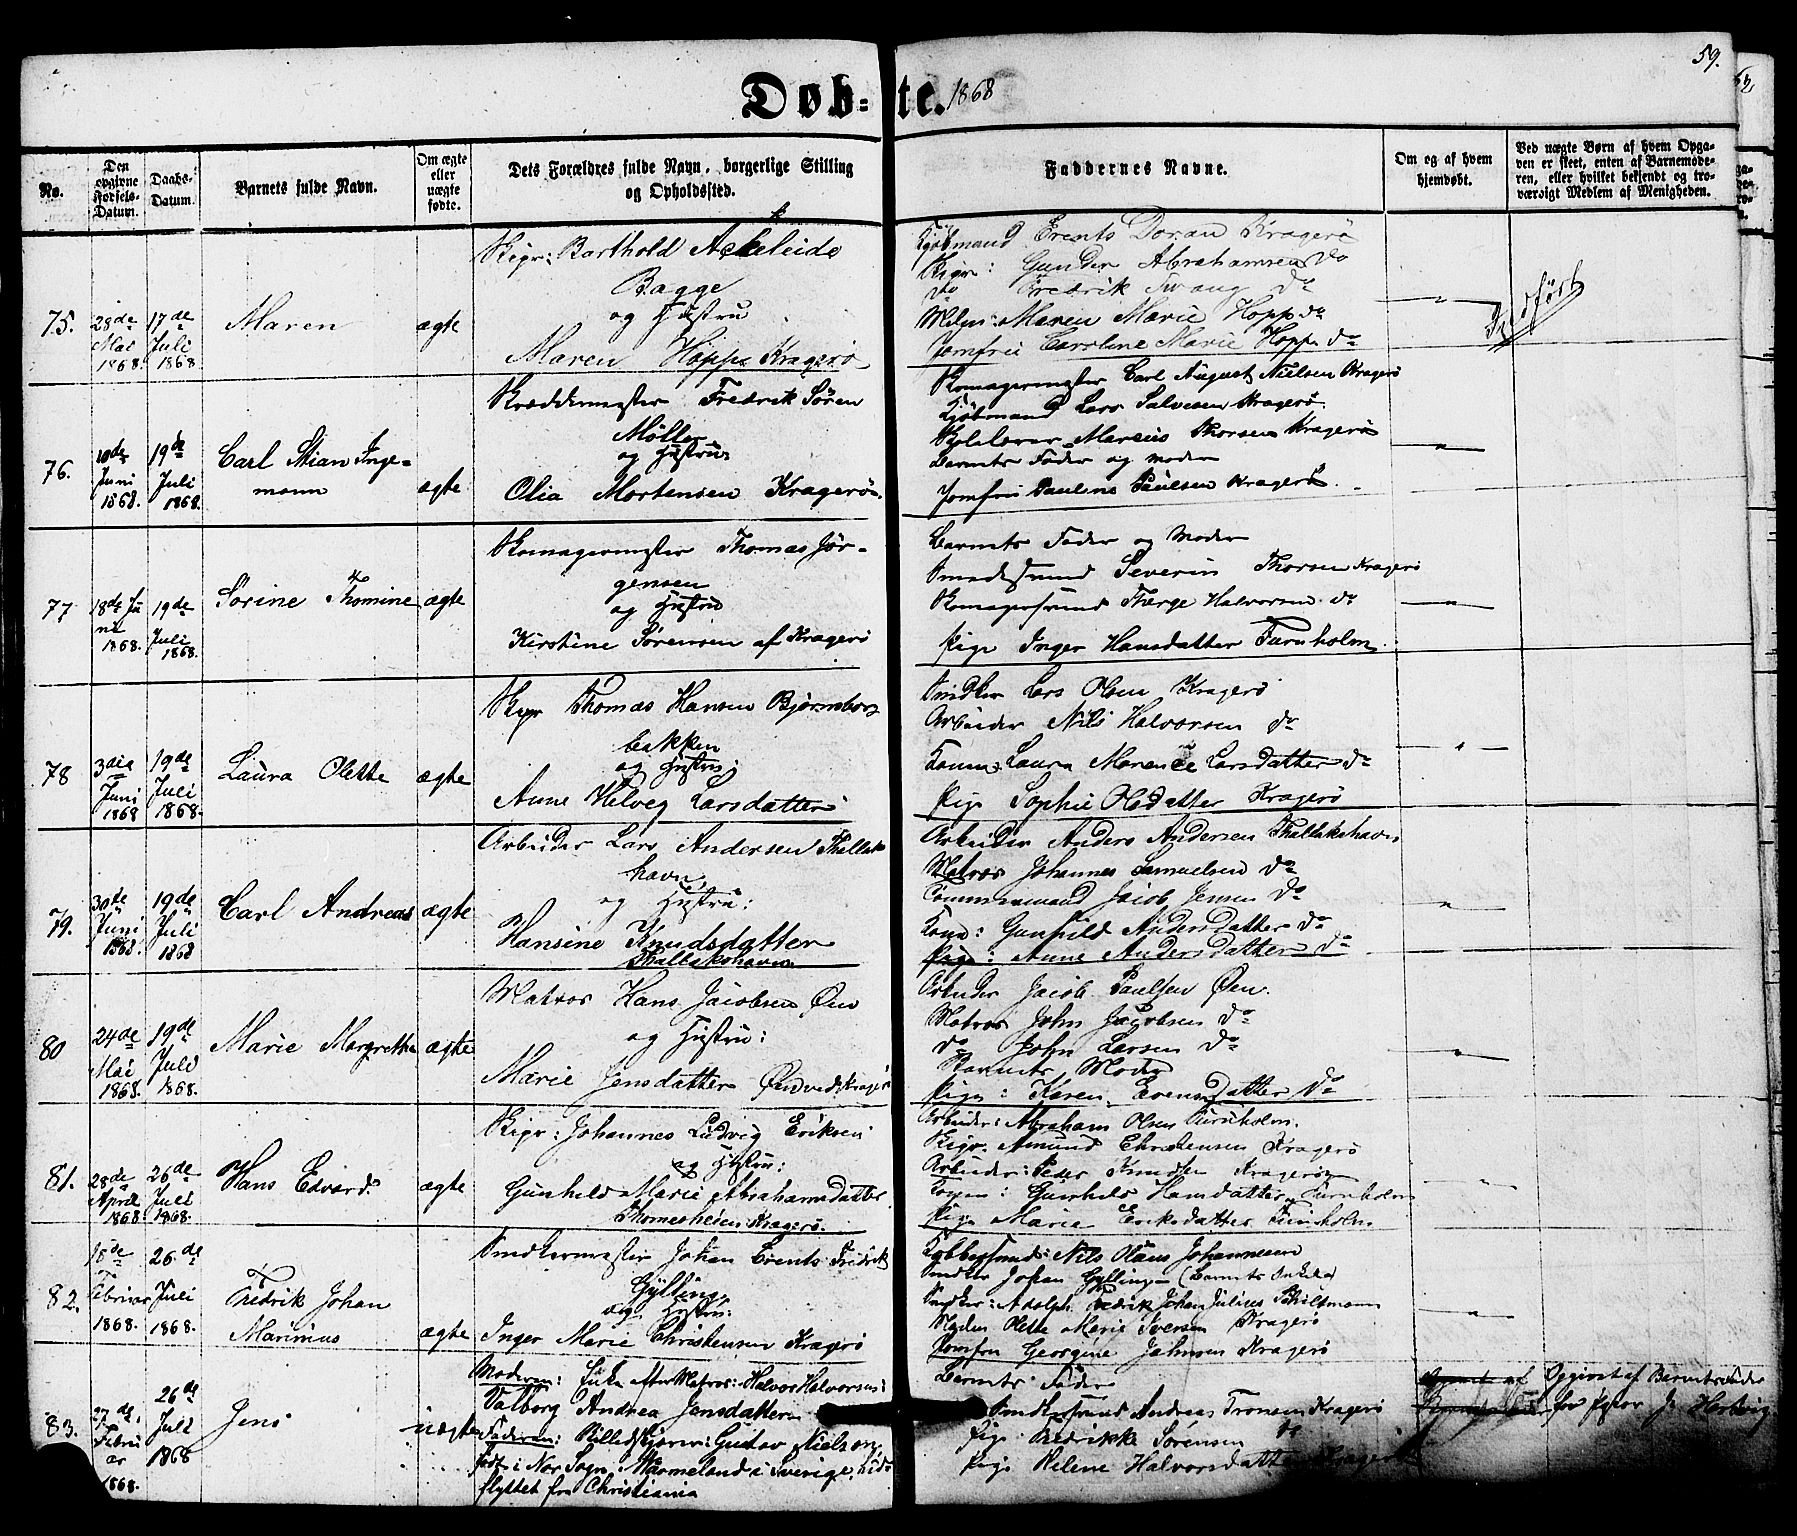 59.
Døb=te. 1868
No.
Den opgivne Forsels-Datum.
Daabs-Datum.
Barnets fulde Navn.
Om ægte eller uægte fødte.
Dets Forældres fulde Navn, borgerlige Stilling og Opholdssted.
Faddernes Navne.
Om og af hvem hjemdøbt.
Ved uægte Børn af hvem Opgaven er skeet, enten af Barnemoderen, eller hvilket bekjendt og troværdigt Medlem af Menigheden.
75.
28de Mai 1868.
17de Juli 1868.
Maren
ægte
Skipr: Barthold Ackeleide
Bagge
og Hustru
Maren Hopp Kragerö
Kjöbmand Erents Doran Kragerö
Skipr: Gunder Abrahamsen do
do Fredrik Svang do
Mdm: Maren Marie Hopp do
Jomfru Caroline Marie Hopp do
76.
10de Juni 1868.
19de Juli 1868.
Carl Stian Inge-
mann
ægte
Skræddermester Fredrik Sören
Möller
og Hustru
Olia Mortensen Kragerö.
Skomagermester Carl August Nielsen Kragerö
Kjöbmand Lars Salvesen Kragerö.
Marcus Thorsen Kragerö
Barnets Fader og Moder
Jomfru Pauline Paulsen Kragerö.
77
18de Juni 1868.
19de Juli 1868.
Sörine Thomine
ægte
Skomagermester Thomas Jör-
gensen
og Hustru
Kirstine Sörensen af Kragerö
Barnets Fader og Moder
Smedesvend Severin Thorsen Kragerö
Skomagersvend Terge Halvorsen do
Pige Inger Hansdatter Furuholm.
78
3die Juni 1868
19de Juli 1868.
Laura Olette
ægte
Skipr Thomas Hansen Björnsbors
bakken
og Hustru:
Anne Helveg Larsdatter
Snedker Lars Olsen Kragerö
Arbeider Nils Halvorsen do
Kone: Laura Marence Larsdatter do
Pige Sophie Olsdatter Kragerö
79.
30de Juni 1868.
19de Juli 1868
Carl Andreas
ægte
Arbeider Lars Andersen Thallaks
havn
og Hustru:
Hansine Knudsdatter
Thallakshavn
Arbeider Anders Andersen Thallakshavn
Matros Johannes Samuelsen do
Tömmermand Jacob Jensen do
Kone: Gunhild Andersdatter do
Pige: Anne Andersdatter do
80
24de Mai 1868.
19de Juli 1868.
Marie Margrethe
ægte
Matros Hans Jacobsen Öen
og Hustru:
Marie Jensdatter Öen ved Kragerö
Arbeider Jacob Paulsen Öen.
Matros John Jacobsen do
do John Larsen do
Barnets Moder
Pige: Karen Evensdatter do
81.
28de April 1868
26de Juli 1868.
Hans Edvard.
ægte
Skipr: Johannes Ludvig Eriksen
og Hustru:
Gunhild Marie Abrahamsdatter
Thomesheien Kragerö.
Arbeider: Abraham Olsen Furuholm.
Skipr. Amund Christensen Kragerö
Arbeider: Peder Knudsen Kragerö
Konen: Gunhild Hansdatter Furuholm
Pige Maria Eriksdatter Furuholm
82.
15de Februar 1868.
26de Juli 1868.
Fredrik Johan
Marinius
ægte
Snedkermester Johan Erents Fredrik
Gylling
og Hustru:
Inger Marie Christensen Kragerö
Nils Olaus Johannesen
Snedker Johan Gylling (Barnets Onkel)
Snedker: Adolph Fredrik Johan Julius Schiltmann
Madm Olette Marie Iversen Kragerö
Jomfru Georgine Johnsen Kragerö
83.
27de Februar 1868.
26de Juli 1868
Jens
uægte
Moderen: Enke efter Matros: Halvor Halvorsen:
Valborg Andrea Jensdatter
Faderen: Billedskjærer: Gustav Nielsen
født i Nor Sogn, Wärmeland i Sverige, hid
flyttet fra Christiania
Barnets Fader
Snedkersvend Andreas Tronsen Kragerö
Pige Fredrikke Sörensen do
Pige Helene Halvorsdatter Kragerö
Opgivet af Barnets Fader
for Pastor J. Hertvig